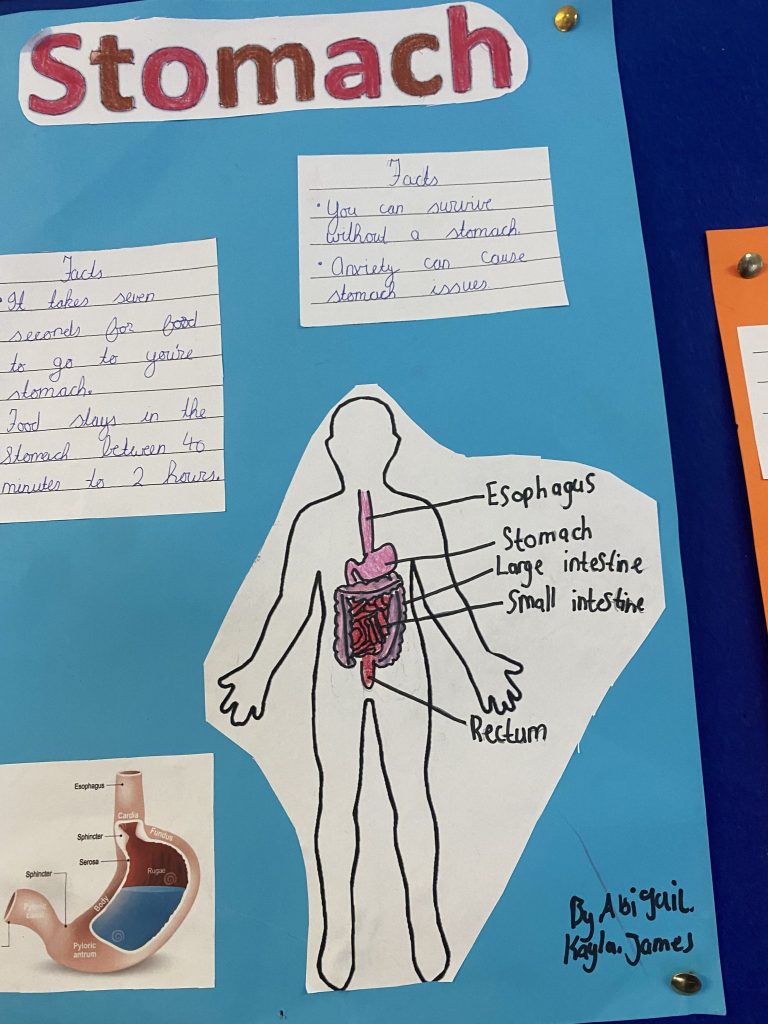 Stomach
Facts
• You can survive
without a stomach.
• Anxiety can cause
stomach issues
Facts
• It takes seven
seconds for food
to go to you're
stomach.
Food stays in the
stomach between 40
minutes to 2 hours.
Esophagus
Stomach
Large intestine
Small intestine
Rectum
Esophagus
Cardia
Fundus
Sphincter
Serosa
Rugae
Sphincter
Body
Pyloric
canal
Pyloric
antrum
By Abigail.
Kayla. James